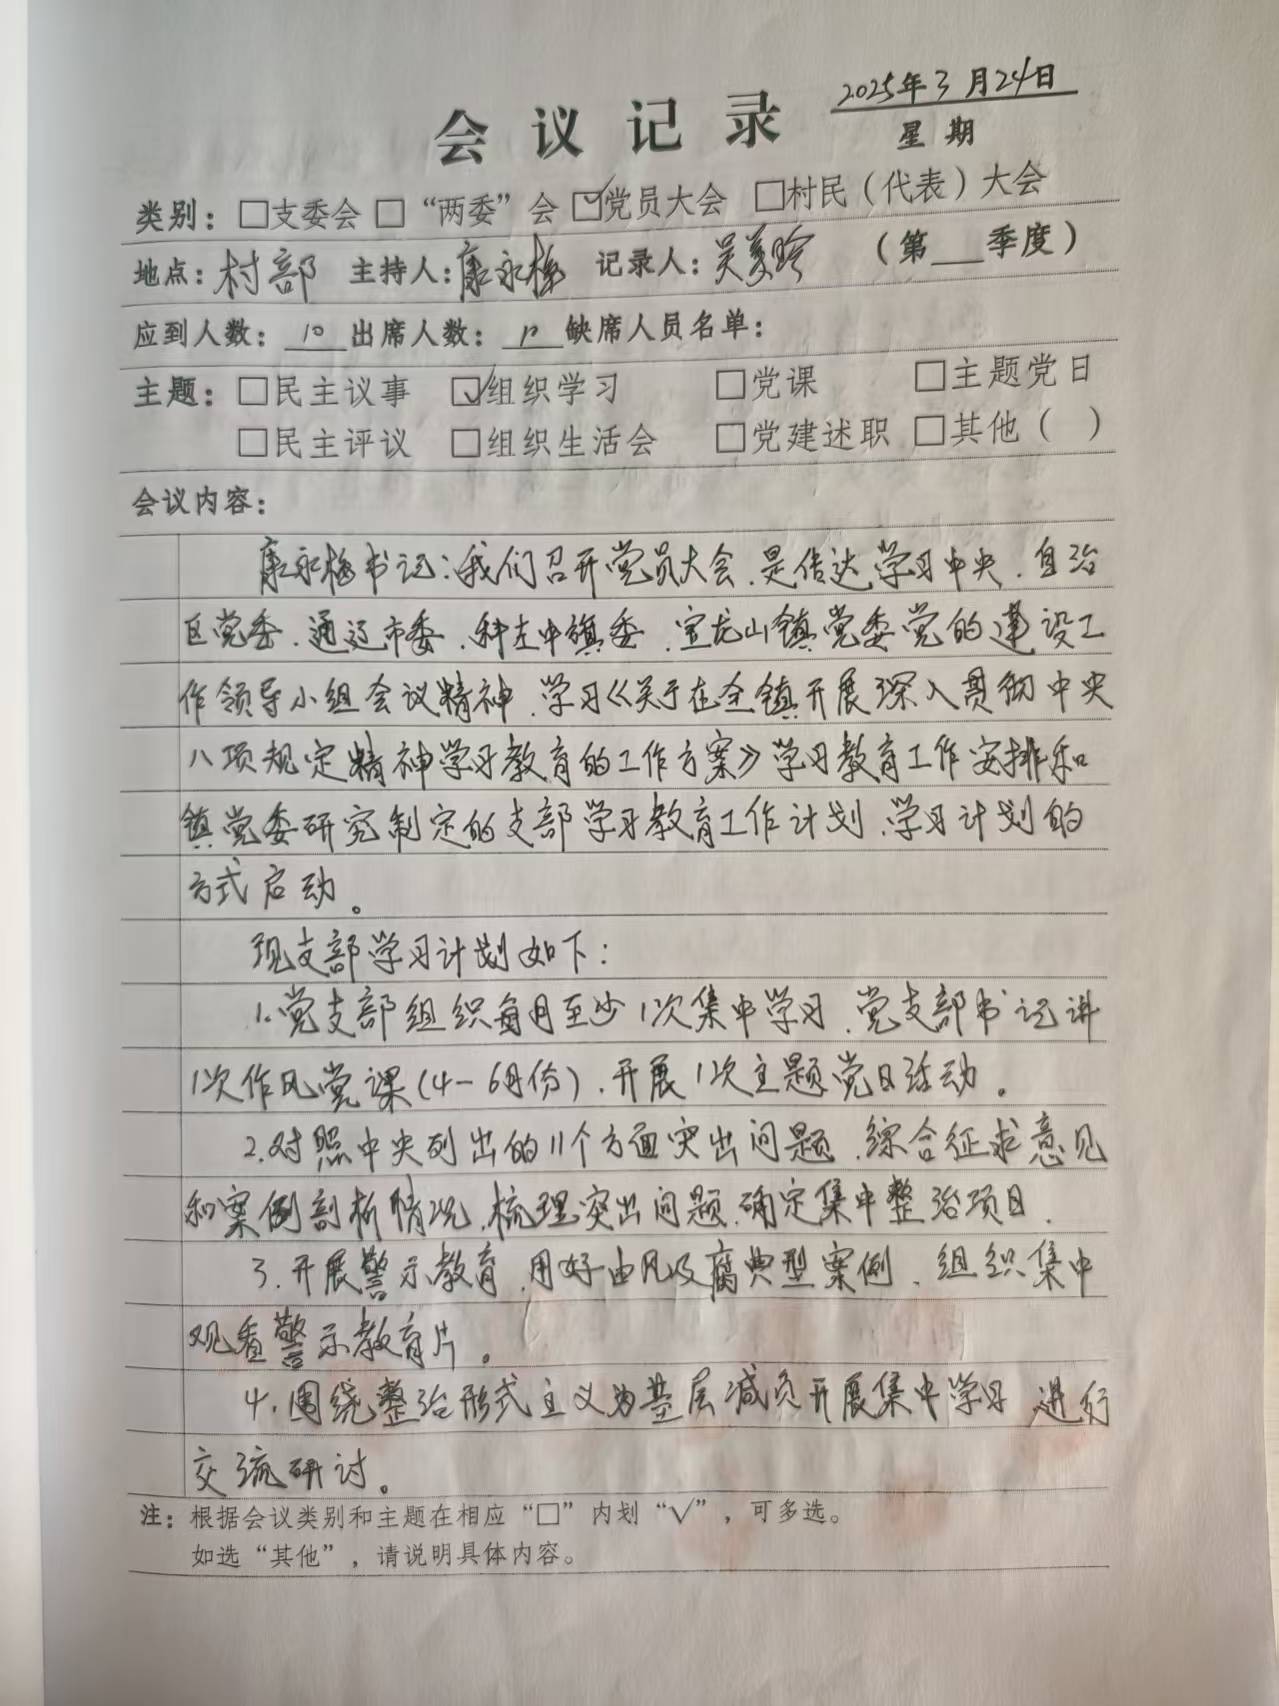 2025年3月24日
会议记录
星期
类别：□支委会 □“两委”会 ☑党员大会 □村民（代表）大会
地点：村部 主持人：康永梅 记录人：吴美玲 （第___季度）
应到人数：10 出席人数：10 缺席人员名单：
主题：□民主议事 ☑组织学习 □党课 □主题党日
□民主评议 □组织生活会 □党建述职 □其他（ ）
会议内容：
康永梅书记：我们召开党员大会、是传达学习中央、自治
区党委、通辽市委、科左中旗委、宝龙山镇党委党的建设工
作领导小组会议精神、学习《关于在全镇开展深入贯彻中央
八项规定精神学习教育的工作方案》学习教育工作安排和
镇党委研究制定的支部学习教育工作计划、学习计划的
方式启动。
现支部学习计划如下：
1.党支部组织每月至少1次集中学习、党支部书记讲
1次作风党课（4－6月份）、开展1次主题党日活动。
2.对照中央列出的11个方面突出问题、综合征求意见
和案例剖析情况、梳理突出问题、确定集中整治项目、
3.开展警示教育、用好由风及腐典型案例、组织集中
观看警示教育片。
4.围绕整治形式主义为基层减负开展集中学习 进行
交流研讨。
注：根据会议类别和主题在相应“□”内划“√”，可多选。
如选“其他”，请说明具体内容。